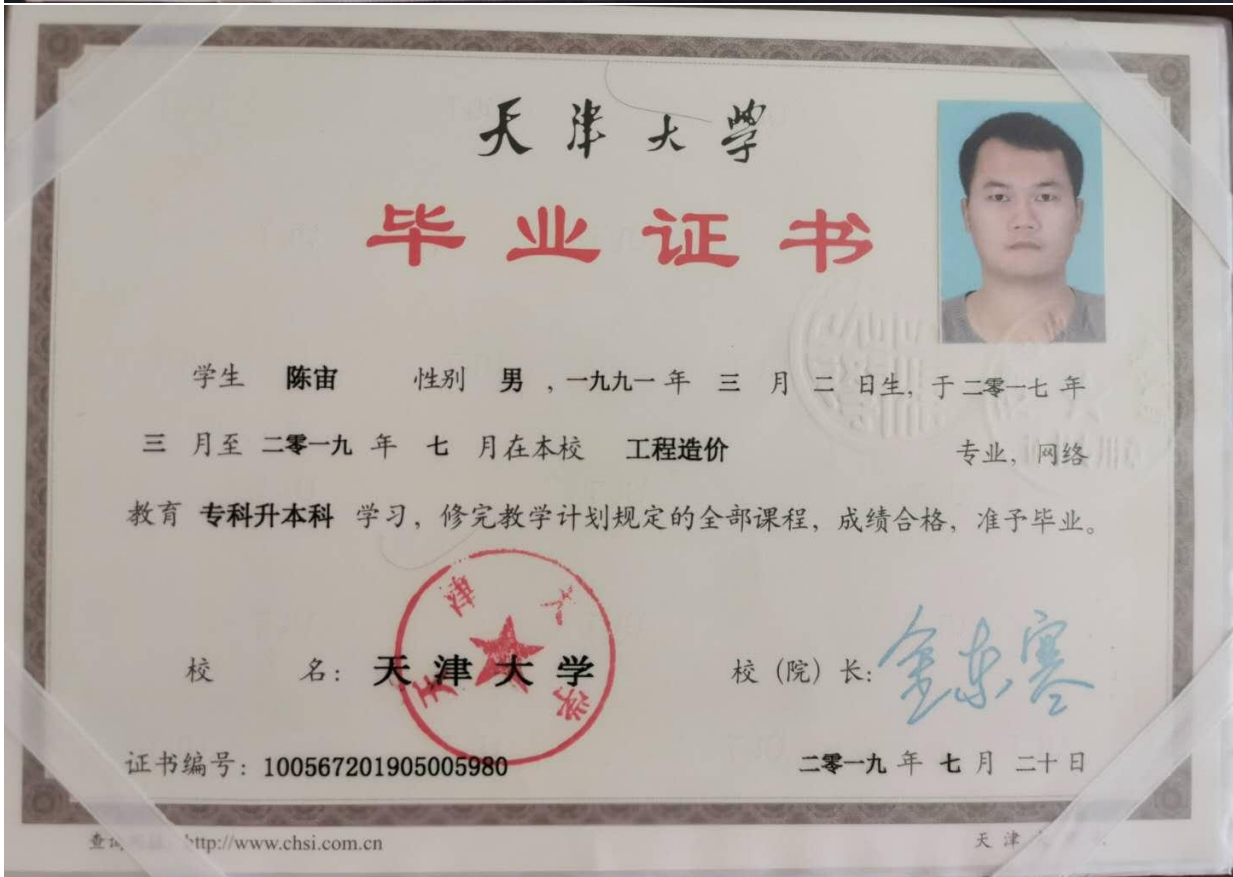 天津大学
毕业证书
学生 陈宙 性别 男，一九九一年 三 月 二 日生，于二零一七年
三 月至 二零一九 年 七 月在本校 工程造价 专业，网络
教育 专科升本科 学习，修完教学计划规定的全部课程，成绩合格，准予毕业。
天津大学
校 名：天津大学 校（院）长：金东寒
证书编号：100567201905005980 二零一九 年 七 月 二十 日
http://www.chsi.com.cn 天津